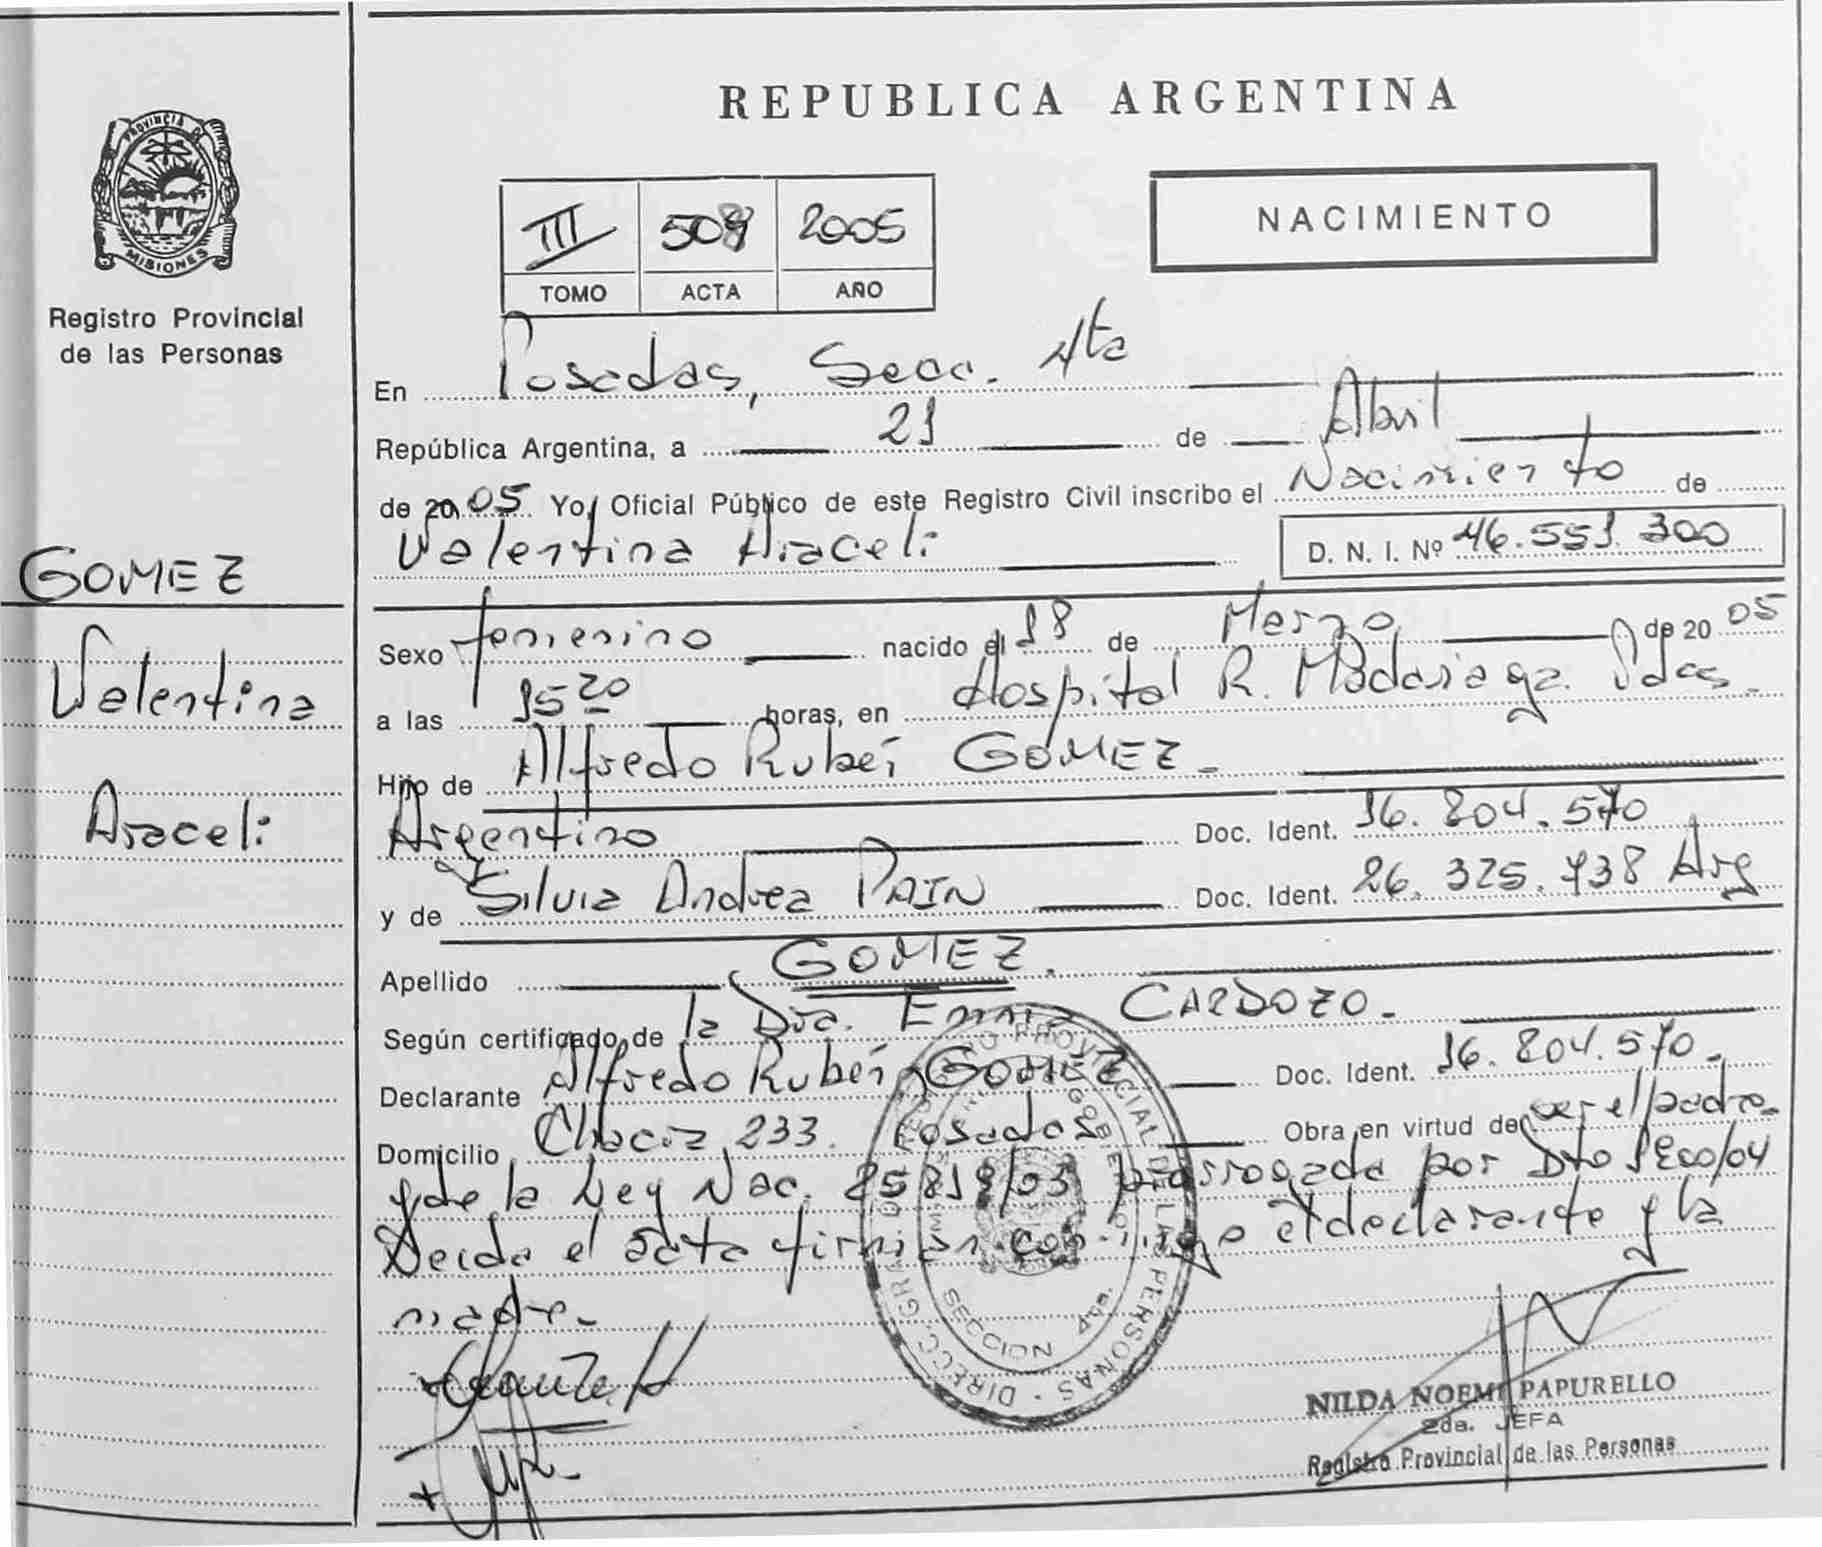 PROVINCIA DE
MISIONES
Registro Provincial
de las Personas
GOMEZ
Valentina
Araceli
REPUBLICA ARGENTINA
III 2005
TOMO ACTA AÑO
NACIMIENTO
En Posadas, Secc. 4ta
República Argentina, a 21 de Abril
de 2005 Yo, Oficial Público de este Registro Civil inscribo el Nacimiento de
Valentina Araceli D. N. I. Nº 46.551.300
Sexo femenino nacido el 18 de Marzo de 2005
a las 15 20 horas, en Hospital R. Madariaga. Pdas.
Hijo de Alfredo Rubén GOMEZ.
Argentino Doc. Ident. 16.804.570
y de Silvia Andrea PAIN Doc. Ident. 26.325.738 Arg
Apellido GOMEZ.
Según certificado de la Dra. CARDOZO.
Declarante Alfredo Rubén GOMEZ Doc. Ident. 16.804.570.
Domicilio 233. Posadas Obra en virtud de ser el padre.
y de la Ley Nac. 25819/03 prorrogada por Dto
Leída el acta firman conmigo el declarante y la
madre.
REGISTRO PROVINCIAL DE LAS PERSONAS
SECCION 4ta.
NILDA NOEMI PAPURELLO
2da. JEFA
Registro Provincial de las Personas